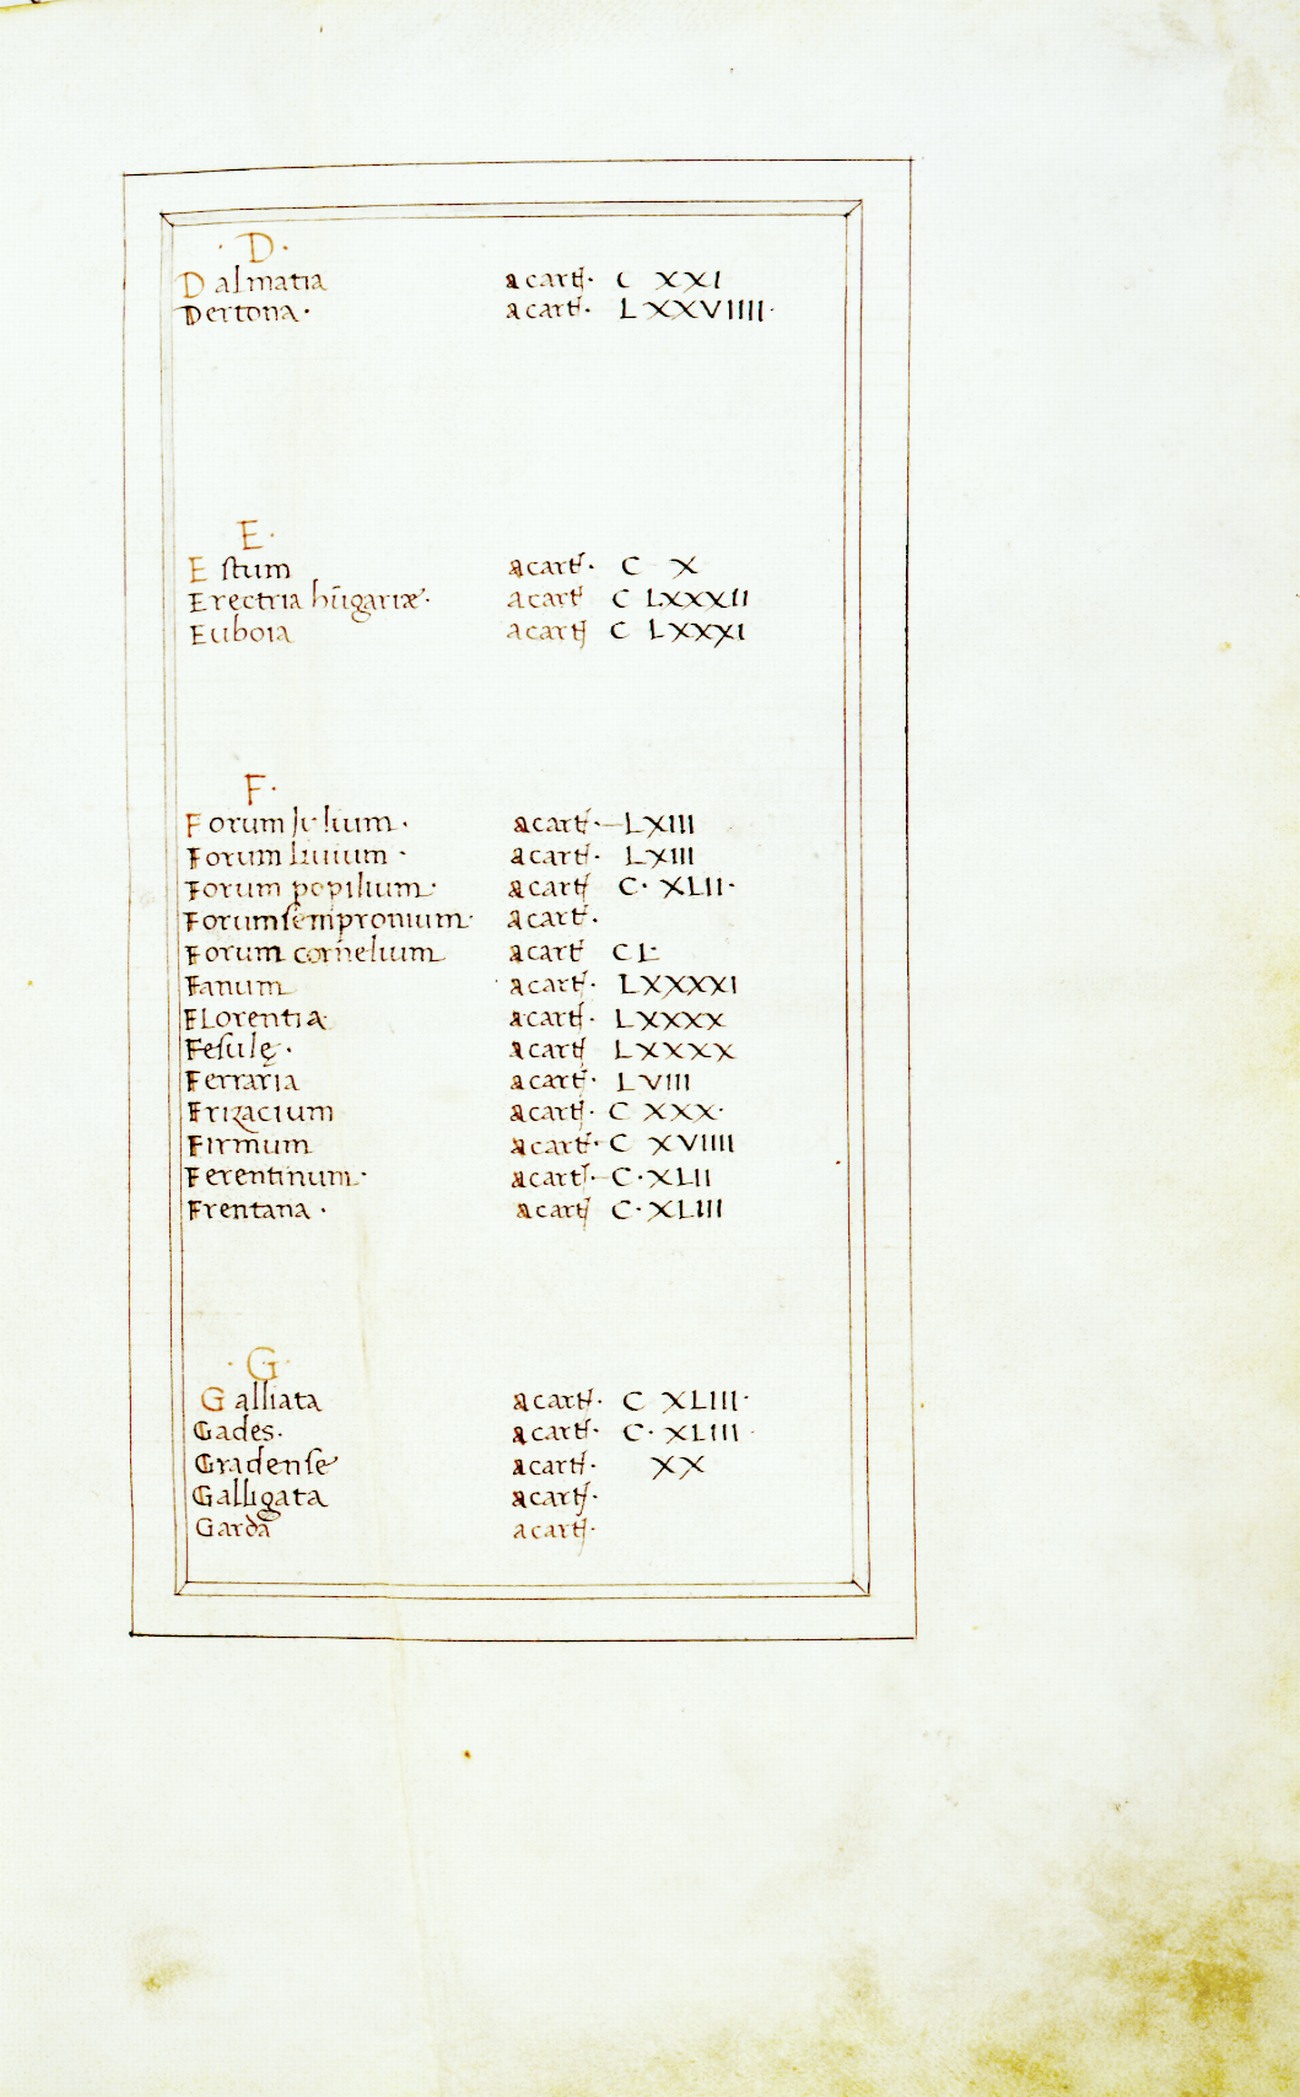 · D ·
Dalmatia acart̄· C XXI
Dertona· acart̄· LXXVIIII·
E·
Estum acart̄· C X
Erectria hūgariæ· acart̄ C LXXXII
Euboia acart̄ C LXXXI
F·
Forum Julium· acart̄· LXIII
Forum liuium· acart̄· LXIII
Forum popilium· acart̄ C· XLII·
Forum sempronium· acart̄·
Forum cornelium acart̄ C L·
Fanum acart̄· LXXXXI
FLorentia· acart̄· LXXXX
Fesulę· acart̄ LXXXX
Ferraria acart̄· LVIII
Frizacium acart̄· C XXX·
Firmum acart̄· C XVIIII
Ferentinum· acart̄· C·XLII
Frentana· acart̄ C·XLIII
· G ·
Galliata acart̄· C XLIII·
Gades· acart̄· C· XLIII·
Gradense acart̄· XX
Galligata acart̄·
Garda acart̄·